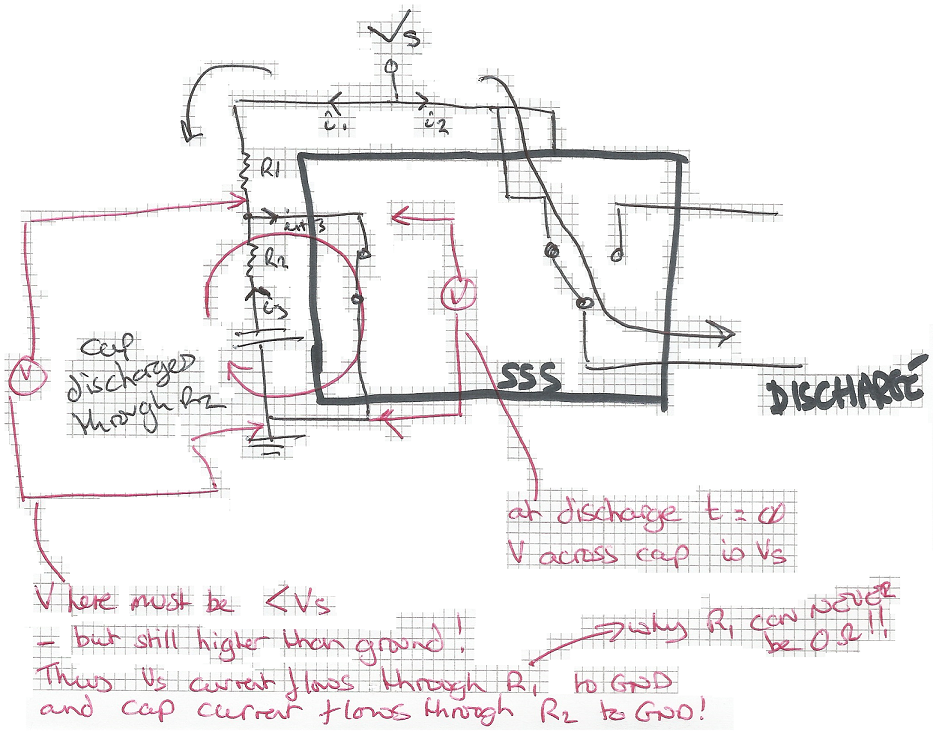 Vs
i1 i2
R1
i1+i3
R2
V
i3
V
cap
discharges
through R2
SSS
DISCHARGE
at discharge t = 0
V across cap is Vs
V here must be < Vs
- but still higher than ground!
Thus Vs current flows through R1 to GND
and cap current flows through R2 to GND!
why R1 can NEVER
be 0Ω!!